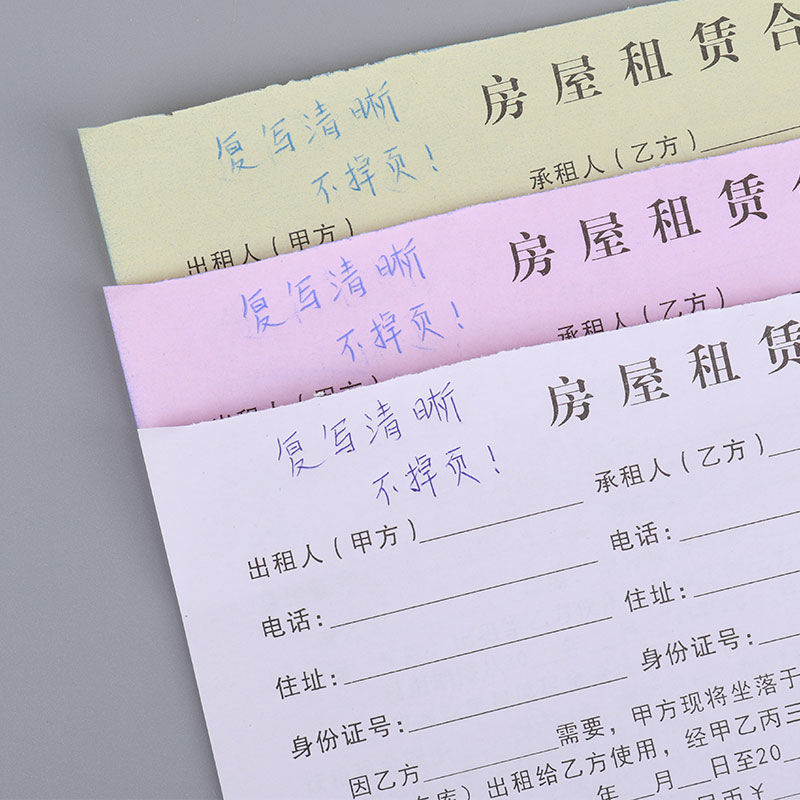 房屋租赁合
复写清晰
不掉页！
承租人（乙方）
出租人（甲方）
房屋租赁
复写清晰
不掉页！
承租人（乙方）
出租人（甲方）
房屋租赁
复写清晰
不掉页！
承租人（乙方）
出租人（甲方）
电话：
电话：
住址：
住址：
身份证号：
身份证号：
因乙方 需要，甲方现将坐落于
库）出租给乙方使用，经甲乙丙三
年 月 日至20